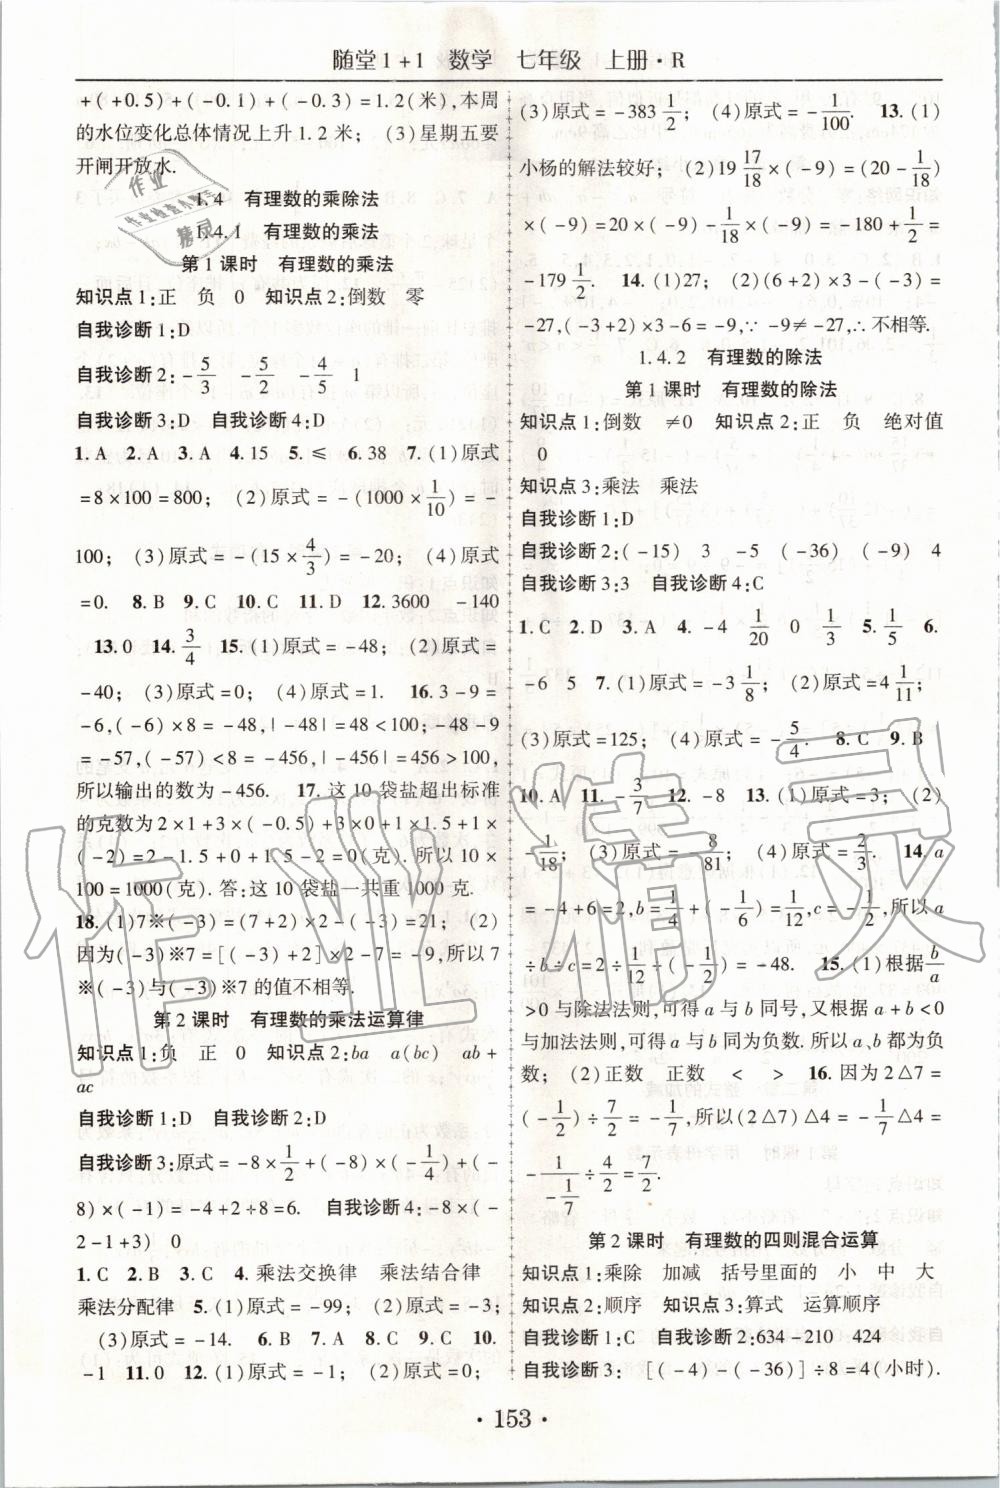 随堂1+1 数学 七年级 上册·R
+(+0.5)+(-0.1)+(-0.3)=1.2(米),本周
的水位变化总体情况上升1.2米;(3)星期五要
开闸开放水.
1.4 有理数的乘除法
1.4.1 有理数的乘法
第1课时 有理数的乘法
知识点1:正 负 0 知识点2:倒数 零
自我诊断1:D
自我诊断2:-5/3 -5/2 -4/5 1
自我诊断3:D 自我诊断4:D
1.A 2.A 3.A 4.15 5.≤ 6.38 7.(1)原式
=8×100=800; (2)原式=-(1000×1/10)=-
100; (3)原式=-(15×4/3)=-20; (4)原式
=0. 8.B 9.C 10.C 11.D 12.3600 -140
13.0 14.3/4 15.(1)原式=-48; (2)原式=
-40; (3)原式=0; (4)原式=1. 16.3-9=
-6,(-6)×8=-48,|-48|=48<100;-48-9
=-57,(-57)×8=-456,|-456|=456>100,
所以输出的数为-456. 17.这10袋盐超出标准
的克数为2×1+3×(-0.5)+3×0+1×1.5+1×
(-2)=2-1.5+0+1.5-2=0(克).所以10×
100=1000(克).答:这10袋盐一共重1000克.
18.(1)7※(-3)=(7+2)×2-(-3)=21; (2)
因为(-3)※7=[(-3)+2]×2-7=-9,所以7
※(-3)与(-3)※7的值不相等.
第2课时 有理数的乘法运算律
知识点1:负 正 0 知识点2:ba a(bc) ab+
ac
自我诊断1:D 自我诊断2:D
自我诊断3:原式=-8×1/2+(-8)×(-1/4)+(-
8)×(-1)=-4+2+8=6. 自我诊断4:-8×(-
2-1+3) 0
1.C 2.B 3.C 4.乘法交换律 乘法结合律
乘法分配律 5.(1)原式=-99; (2)原式=-3;
(3)原式=-14. 6.B 7.A 8.C 9.C 10.
-1 11.0 12.(1)原式=-1; (2)原式=0;
(3)原式=-383 1/2; (4)原式=-1/100. 13.(1)
小杨的解法较好; (2)19 17/18×(-9)=(20-1/18)
×(-9)=20×(-9)-1/18×(-9)=-180+1/2=
-179 1/2. 14.(1)27; (2)(6+2)×3-(-3)=
-27,(-3+2)×3-6=-9,∵-9≠-27,∴不相等.
1.4.2 有理数的除法
第1课时 有理数的除法
知识点1:倒数 ≠0 知识点2:正 负 绝对值
0
知识点3:乘法 乘法
自我诊断1:D
自我诊断2:(-15) 3 -5 (-36) (-9) 4
自我诊断3:3 自我诊断4:C
1.C 2.D 3.A 4.-4 1/20 0 1/3 5.1/5 6.
-6 5 7.(1)原式=-3 1/8; (2)原式=4 1/11;
(3)原式=125; (4)原式=-5/4. 8.C 9.B
10.A 11.-3/7 12.-8 13.(1)原式=3; (2)
-1/18; (3)原式=-8/81; (4)原式=2/3. 14.a
=-4+6=2,b=1/4+(-1/6)=1/12,c=-1/2,所以a
÷b÷c=2÷1/12÷(-1/2)=-48. 15.(1)根据b/a
>0与除法法则,可得a与b同号,又根据a+b<0
与加法法则,可得a与b同为负数.所以a、b都为负
数; (2)正数 正数 < < 16.因为2△7=
(-1/2)÷7/2=-1/7,所以(2△7)△4=-1/7△4=
-1/(-1/7)÷4/2=7/2.
第2课时 有理数的四则混合运算
知识点1:乘除 加减 括号里面的 小 中 大
知识点2:顺序 知识点3:算式 运算顺序
自我诊断1:C 自我诊断2:634-210 424
自我诊断3: [(-4)-(-36)]÷8=4(小时).
·153·
作业精灵